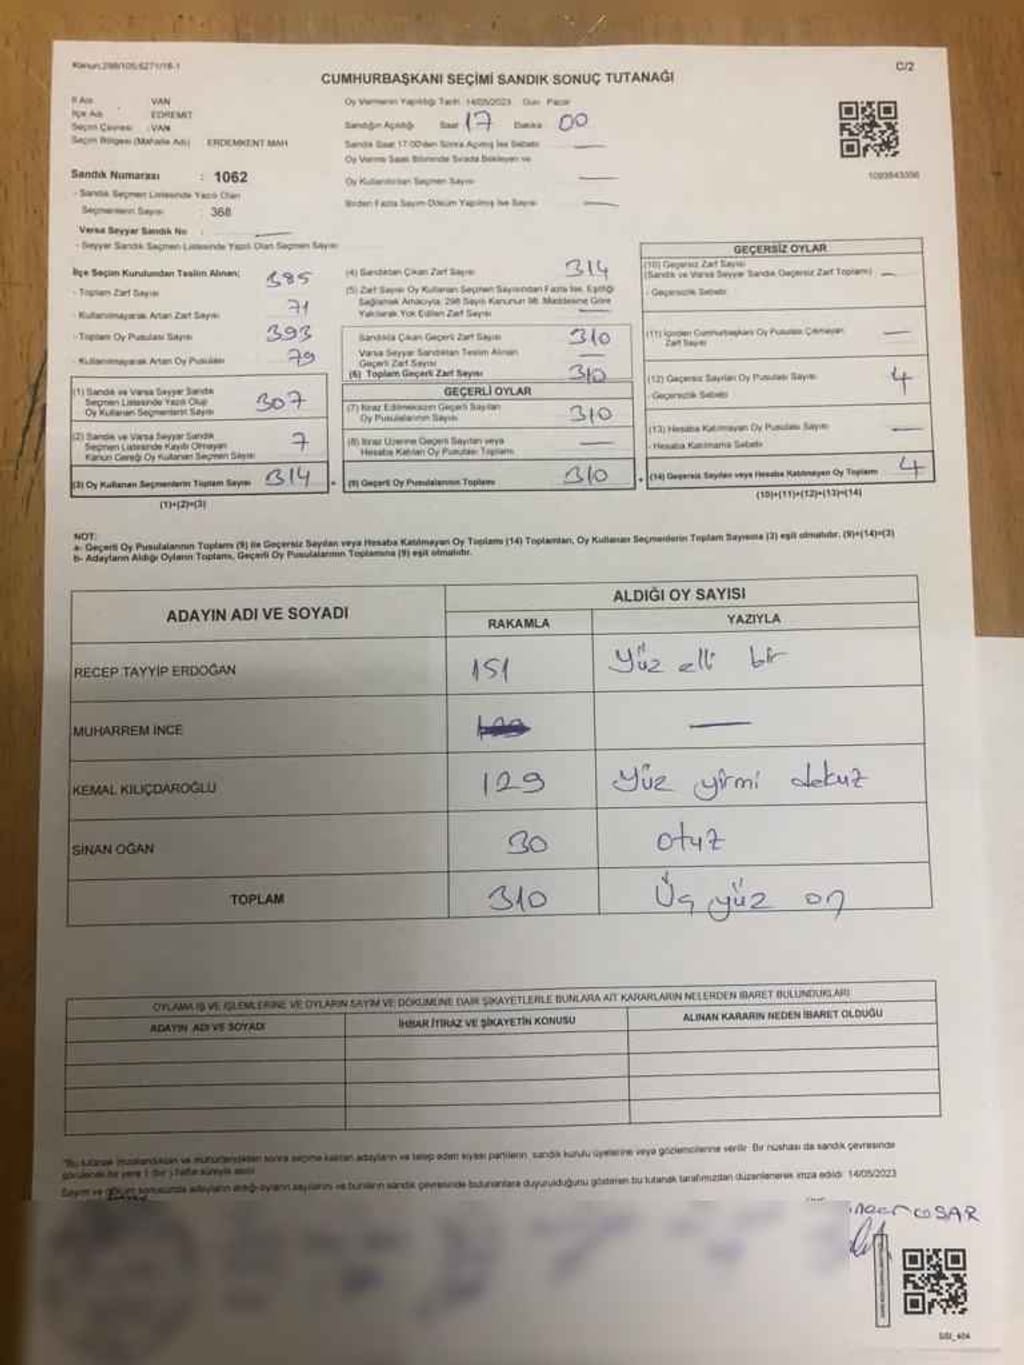 Kanun:298/105;6271/18-1
C/2
CUMHURBAŞKANI SEÇİMİ SANDIK SONUÇ TUTANAĞI
İl Adı : VAN
İlçe Adı : EDREMİT
Seçim Çevresi : VAN
Seçim Bölgesi (Mahalle Adı) ERDEMKENT MAH
Oy Vermenin Yapıldığı Tarih 14/05/2023 Gün Pazar
Sandığın Açıldığı Saat 17 Dakika 00
Sandık Saat 17:00'den Sonra Açılmış İse Sebebi —
Oy Verme Saati Bitiminde Sırada Bekleyen ve
Oy Kullandırılan Seçmen Sayısı —
Birden Fazla Sayım Döküm Yapılmış İse Sayısı —
Sandık Numarası : 1062
- Sandık Seçmen Listesinde Yazılı Olan
Seçmenlerin Sayısı : 368
Varsa Seyyar Sandık No : —
- Seyyar Sandık Seçmen Listesinde Yazılı Olan Seçmen Sayısı
İlçe Seçim Kurulundan Teslim Alınan; 385
- Toplam Zarf Sayısı
- Kullanılmayarak Artan Zarf Sayısı 71
- Toplam Oy Pusulası Sayısı 393
- Kullanılmayarak Artan Oy Pusulası 79
(1) Sandık ve Varsa Seyyar Sandık
Seçmen Listesinde Yazılı Olup
Oy Kullanan Seçmenlerin Sayısı 307
(2) Sandık ve Varsa Seyyar Sandık
Seçmen Listesinde Kayıtlı Olmayan
Kanun Gereği Oy Kullanan Seçmen Sayısı 7
(3) Oy Kullanan Seçmenlerin Toplam Sayısı 314
(1)+(2)=(3)
(4) Sandıktan Çıkan Zarf Sayısı 314
(5) Zarf Sayısı Oy Kullanan Seçmen Sayısından Fazla İse, Eşitliği
Sağlamak Amacıyla, 298 Sayılı Kanunun 98. Maddesine Göre
Yakılarak Yok Edilen Zarf Sayısı —
Sandıkta Çıkan Geçerli Zarf Sayısı 310
Varsa Seyyar Sandıktan Teslim Alınan
Geçerli Zarf Sayısı —
(6) Toplam Geçerli Zarf Sayısı 310
GEÇERLİ OYLAR
(7) İtiraz Edilmeksizin Geçerli Sayılan
Oy Pusulalarının Sayısı 310
(8) İtiraz Üzerine Geçerli Sayılan veya
Hesaba Katılan Oy Pusulası Toplamı —
(9) Geçerli Oy Pusulalarının Toplamı 310
GEÇERSİZ OYLAR
(10) Geçersiz Zarf Sayısı
(Sandık ve Varsa Seyyar Sandık Geçersiz Zarf Toplamı) —
- Geçersizlik Sebebi
(11) İçinden Cumhurbaşkanı Oy Pusulası Çıkmayan
Zarf Sayısı —
(12) Geçersiz Sayılan Oy Pusulası Sayısı 4
- Geçersizlik Sebebi
(13) Hesaba Katılmayan Oy Pusulası Sayısı —
- Hesaba Katılmama Sebebi
(14) Geçersiz Sayılan veya Hesaba Katılmayan Oy Toplamı 4
(10)+(11)+(12)+(13)=(14)
NOT:
a- Geçerli Oy Pusulalarının Toplamı (9) ile Geçersiz Sayılan veya Hesaba Katılmayan Oy Toplamı (14) Toplamları, Oy Kullanan Seçmenlerin Toplam Sayısına (3) eşit olmalıdır. (9)+(14)=(3)
b- Adayların Aldığı Oyların Toplamı, Geçerli Oy Pusulalarının Toplamına (9) eşit olmalıdır.
ADAYIN ADI VE SOYADI
ALDIĞI OY SAYISI
RAKAMLA YAZIYLA
RECEP TAYYİP ERDOĞAN 151 Yüz elli bir
MUHARREM İNCE —
KEMAL KILIÇDAROĞLU 129 Yüz yirmi dokuz
SİNAN OĞAN 30 otuz
TOPLAM 310 Üç yüz on
OYLAMA İŞ VE İŞLEMLERİNE VE OYLARIN SAYIM VE DÖKÜMÜNE DAİR ŞİKAYETLERLE BUNLARA AİT KARARLARIN NELERDEN İBARET BULUNDUKLARI
ADAYIN ADI VE SOYADI İHBAR İTİRAZ VE ŞİKAYETİN KONUSU ALINAN KARARIN NEDEN İBARET OLDUĞU
"Bu tutanak imzalandıktan ve mühürlendikten sonra seçime katılan adayların ve talep eden siyasi partilerin, sandık kurulu üyelerine veya gözlemcilerine verilir. Bir nüshası da sandık çevresinde
görülecek bir yere 1 (bir) hafta süreyle asılır.
Sayım ve döküm sonucunda adayların aldığı oyların sayılarını ve bunların sandık çevresinde bulunanlara duyurulduğunu gösteren bu tutanak tarafımızdan düzenlenerek imza edildi. 14/05/2023
COSAR